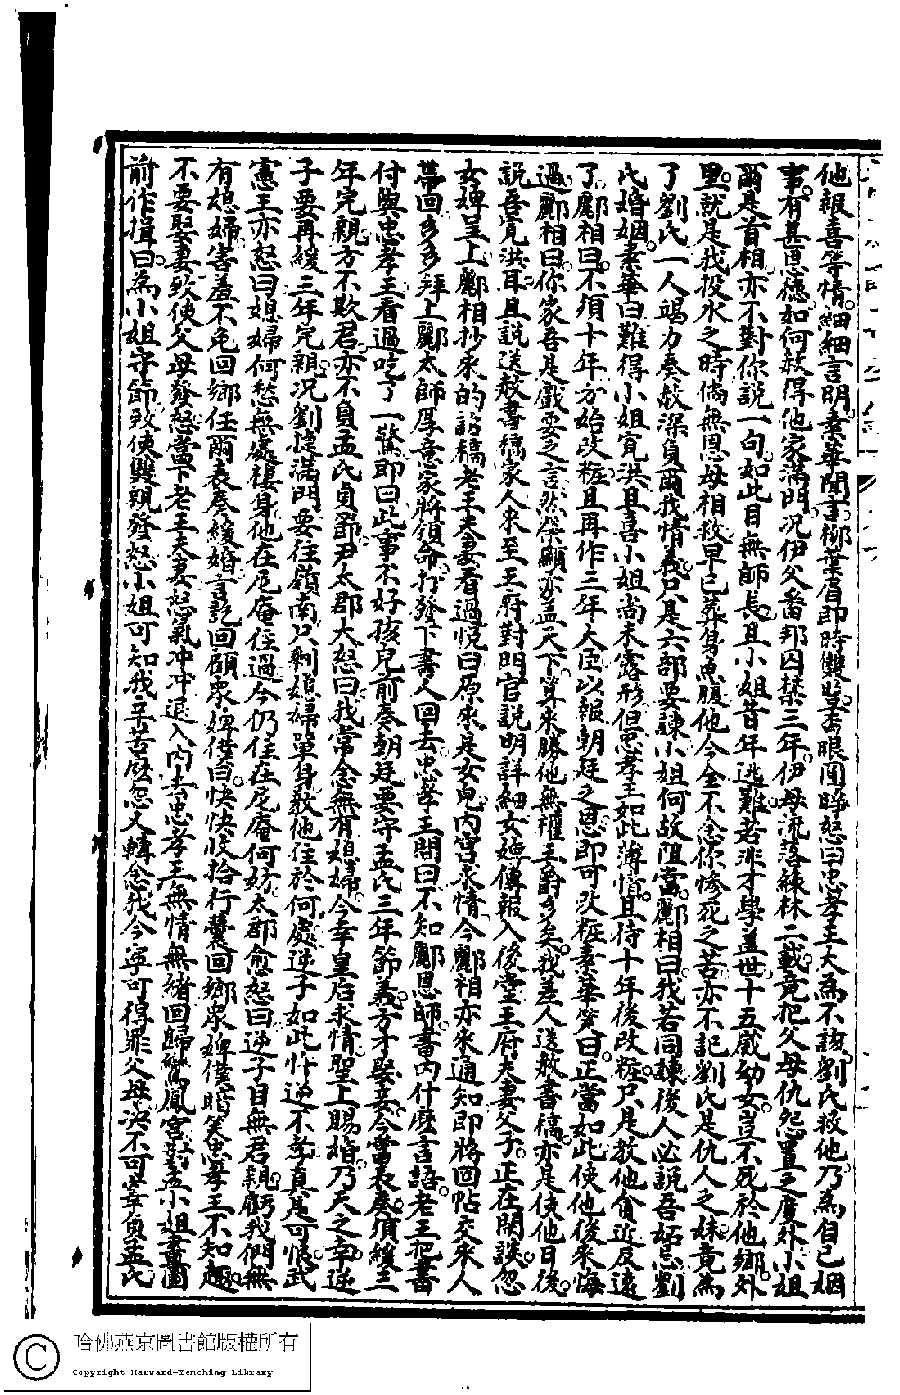 他報喜等情細細言明素華聞言柳葉眉即時雙豎杏眼圓睜怒曰忠孝王大為不該劉氏救他乃為自己姻
事有甚恩德如何赦得他家滿門況伊父番邦囚禁三年伊母流落綠林二載竟把父母仇怨置之度外小姐
爾是首相亦不對你說一句如此目無師長且小姐昔年逃難若非才學蓋世十五歲幼女豈不死於他鄉外
里就是我投水之時倘無恩母相救早已葬身魚腹他今全不念你慘死之苦亦不記劉氏是仇人之妹竟為
了劉氏一人竭力奏赦深負爾我情義只是六部要諫小姐何故阻當酈相曰我若同諫後人必說吾妬忌劉
氏婚姻素華曰難得小姐寬洪且喜小姐尚未露形但忠孝王如此薄情且待十年後改粧只是教他貪近反遠
了酈相曰不須十年方始改粧且再作三年大臣以報朝廷之恩即可改粧素華笑曰正當如此使他後來悔
過酈相曰你家吾是戲耍之言然榮顯亦蓋天下算來勝他無權王爵多矣我差人送赦書稿亦是使他日後
說吾寬洪耳且說送赦書稿家人來至王府對門官說明詳細女婢傳報入後堂王府夫妻父子正在閑談忽
女婢呈上酈相抄來的詔稿老王夫妻看過悅曰原來是女兒內宮求情今酈相亦來通知即將回帖交來人
帶回多多拜上酈太師厚意家將領命打發下書人回去忠孝王問曰不知酈恩師書內什麼言語老王把書
付與忠孝王看過吃了一驚即曰此事不好孩兒前奏朝廷要守孟氏三年節義方才娶妾今當表奏須緩三
年完親方不欺君亦不負孟氏貞節尹太郡大怒曰我常念無有媳婦今幸皇后求情聖上賜婚乃天之幸逆
子要再緩三年完親況劉捷滿門要往嶺南只剩媳婦單身教他住於何處逆子如此忤逆不孝真是可惱武
憲王亦怒曰媳婦何愁無處棲身他在尼庵住過今仍住在尼庵何妨太郡愈怒曰逆子目無君親虧我們無
有媳婦害羞不免回鄉任爾表奏緩婚言訖回顧眾婢僕曰快快收拾行囊回鄉眾婢僕暗笑忠孝王不知趣
不要娶妻致使父母發怒當下老王夫妻怒氣冲冲退入內去忠孝王無情無緒回歸鸞鳳宮對孟小姐畫圖
前作揖曰為小姐守節致使雙親發怒小姐可知我辛苦麼怎又轉念我今寧可得罪父母决不可辜負孟氏
哈佛燕京圖書館版權所有
Copyright Harvard-Yenching Library